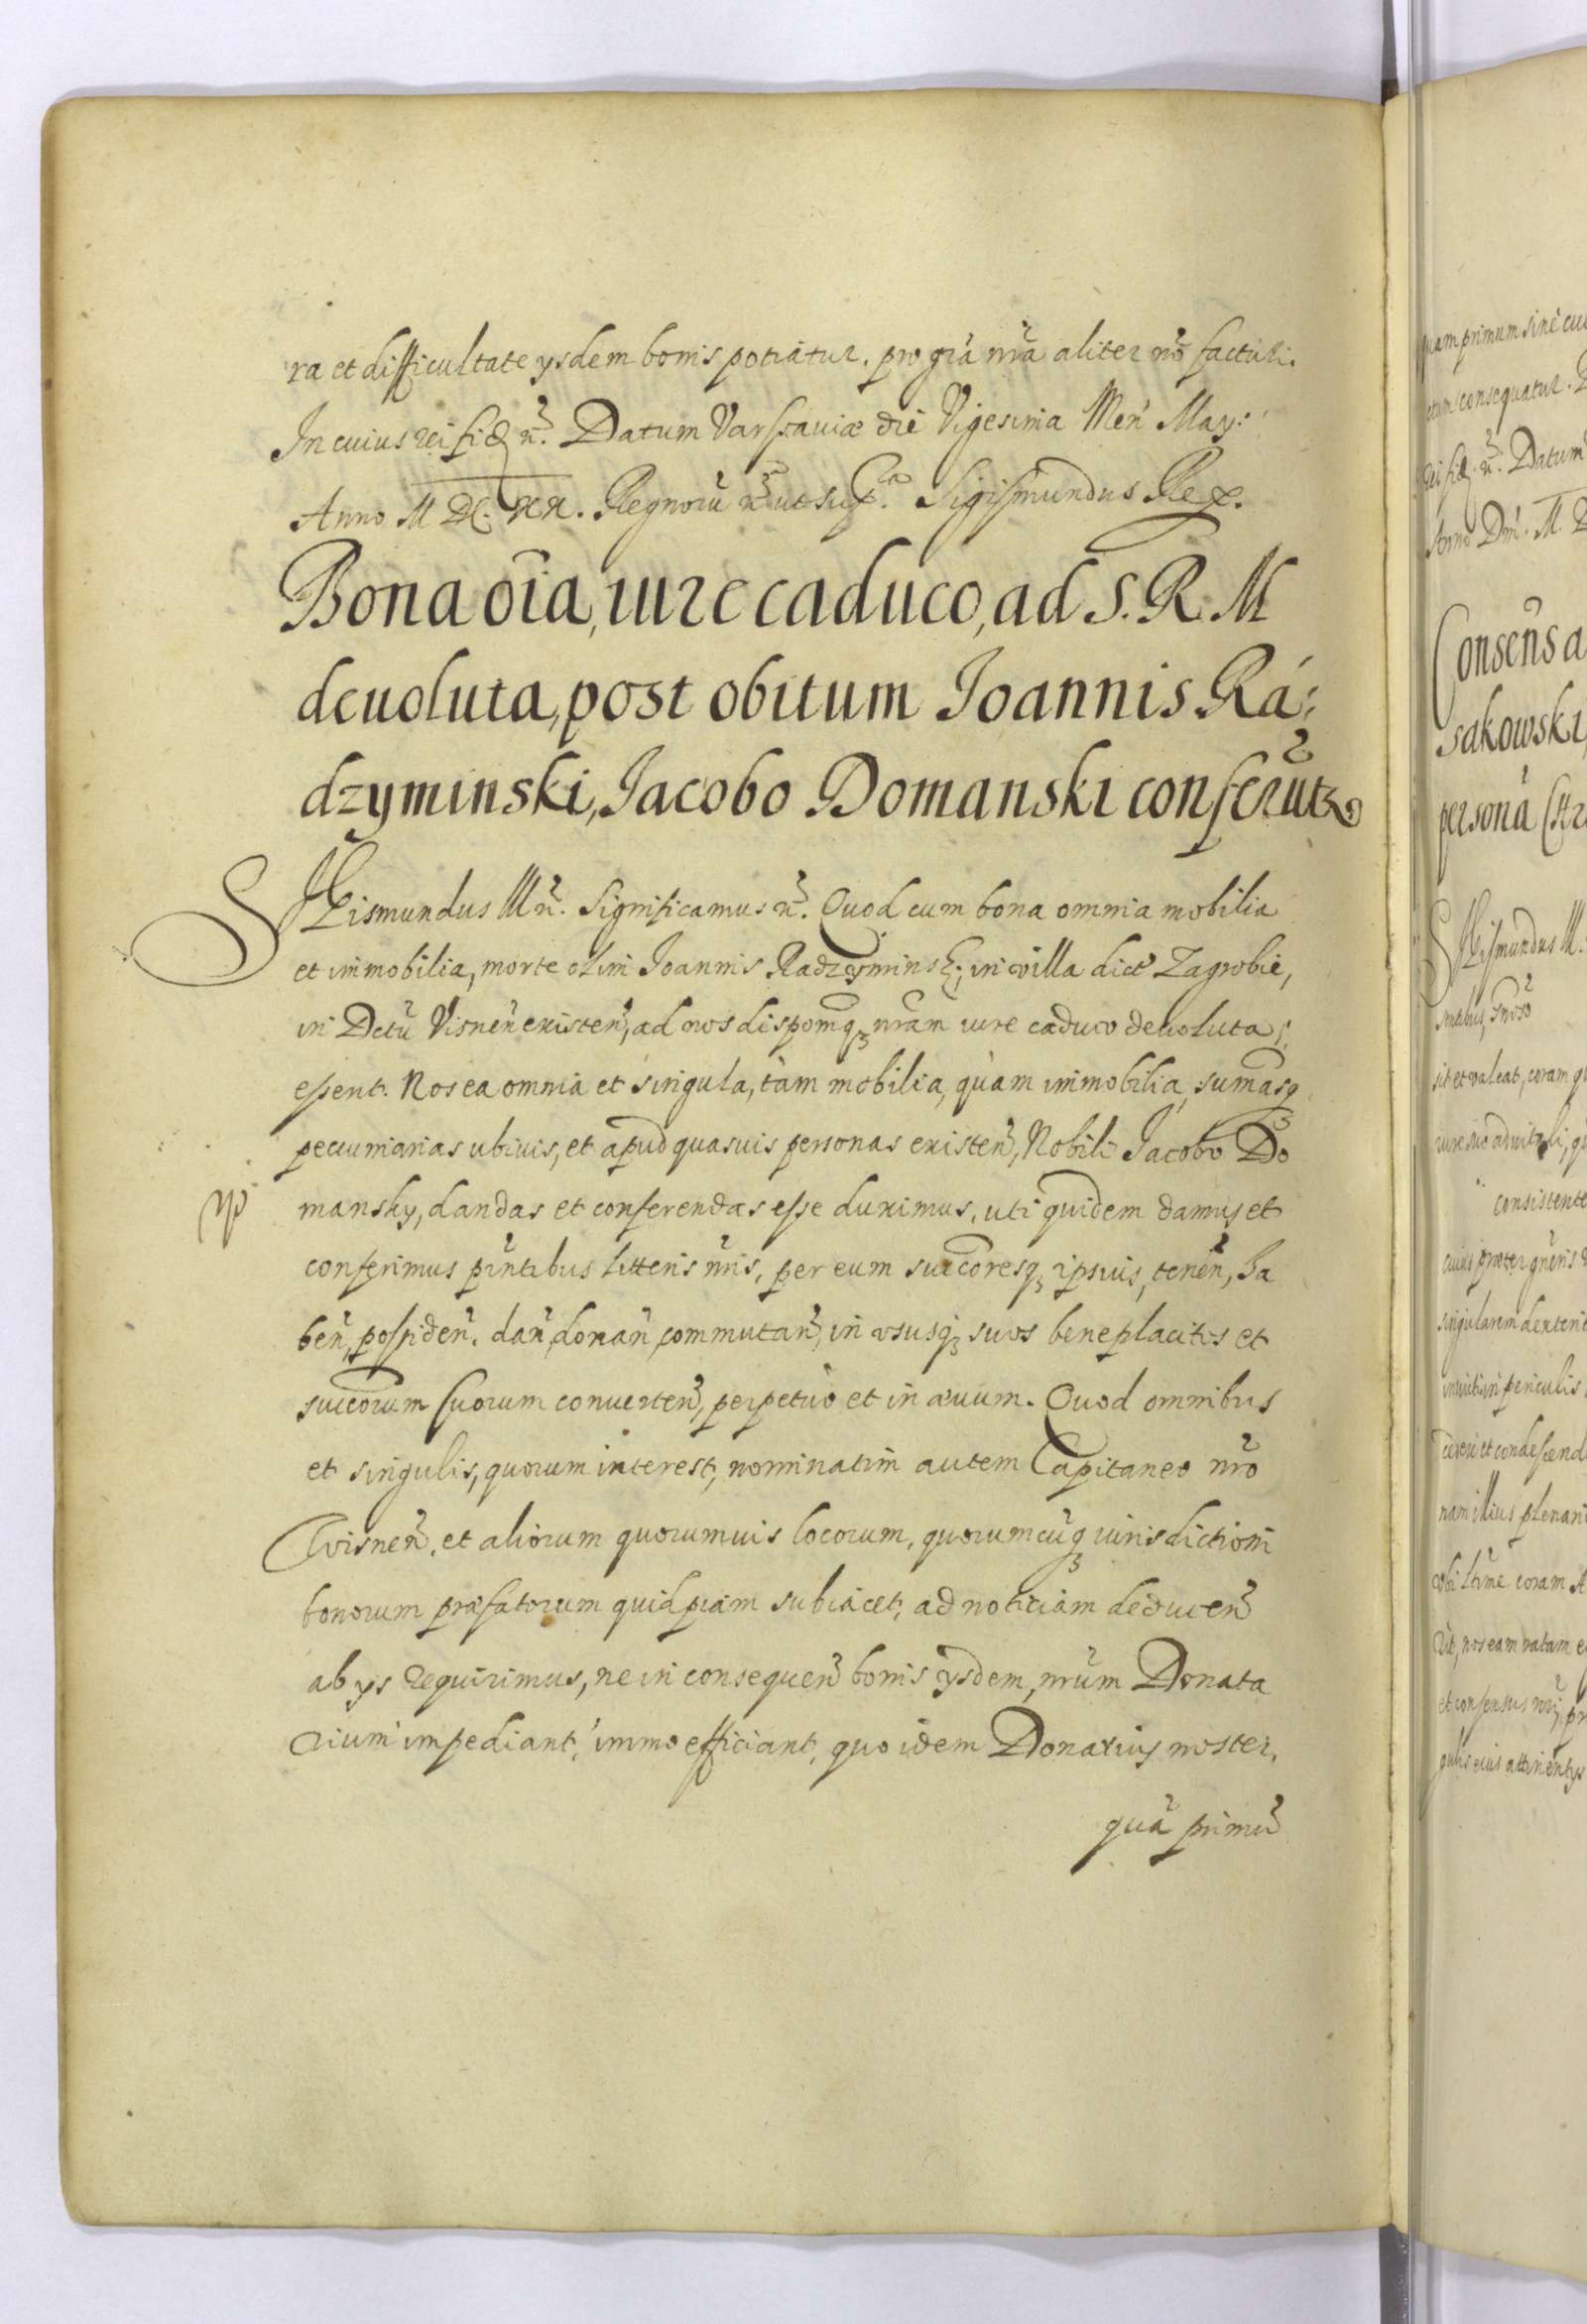 ra et difficultate ysdem bonis potiatur. pro grã nrã aliter nõ facturi.
In cuius rei fid. &c. Datum Varssauiæ die Vigesima Men May.
Anno M DC. XX. Regnorũ &c ut sup.ª Sigismundus Rex.
Bona oĩa, iure caduco, ad S. R. M
deuoluta, post obitum Joannis Rá:
dzyminski, Jacobo Domanski conferũtr
SIGismundus III &c. Significamus &c. Quod cum bona omnia mobilia
et immobilia, morte olim Joannis Radzyminsk: in villa dict Zagrobie,
in Dctũ Visneñ existeñ, ad nos dispoñq; nrãm iure caduco deuoluta
essent. Nos ea omnia et singula, tàm mobilia, quàm immobilia, sumasq;
pecuniarias ubiuis, et apud quasuis personas existeñ, Nobili Jacobo Do
mansky, dandas et conferendas esse duximus, uti quidem damus et
conferimus pñtibus litteris nris, per eum succoresq; ipsius, teneñ, ha
beñ, possideñ. dañ, donañ, commutañ, in vsusq; suos beneplacitos et
succorum suorum conuerteñ, perpetuò et in æuum. Quod omnibus
et singulis, quorum interest, nominatim autem Capitaneo nrõ
Visneñ. et aliorum quorumuis locorum, quorumcũq; iurisdictioni
bonorum præfatorum quidpiam subiacet, ad noticiam deduceñ
ab ys requirimus, ne in consequeñ bonis ysdem, nrũm Donata
rium impediant, immo efficiant, quo idem Donarius noster,
quã primũ
quam primum sine cu
consequatur.
rei fid. &c. Datum
Anno Dnĩ. M. D
Consens a
sakowski
personã
Sigismundus III.
sit et valeat, coram
consistente
singularem dexterit
periculis
et condescend
nam illius plenari
coram
nos eam ratam e
et consensus nrĩ